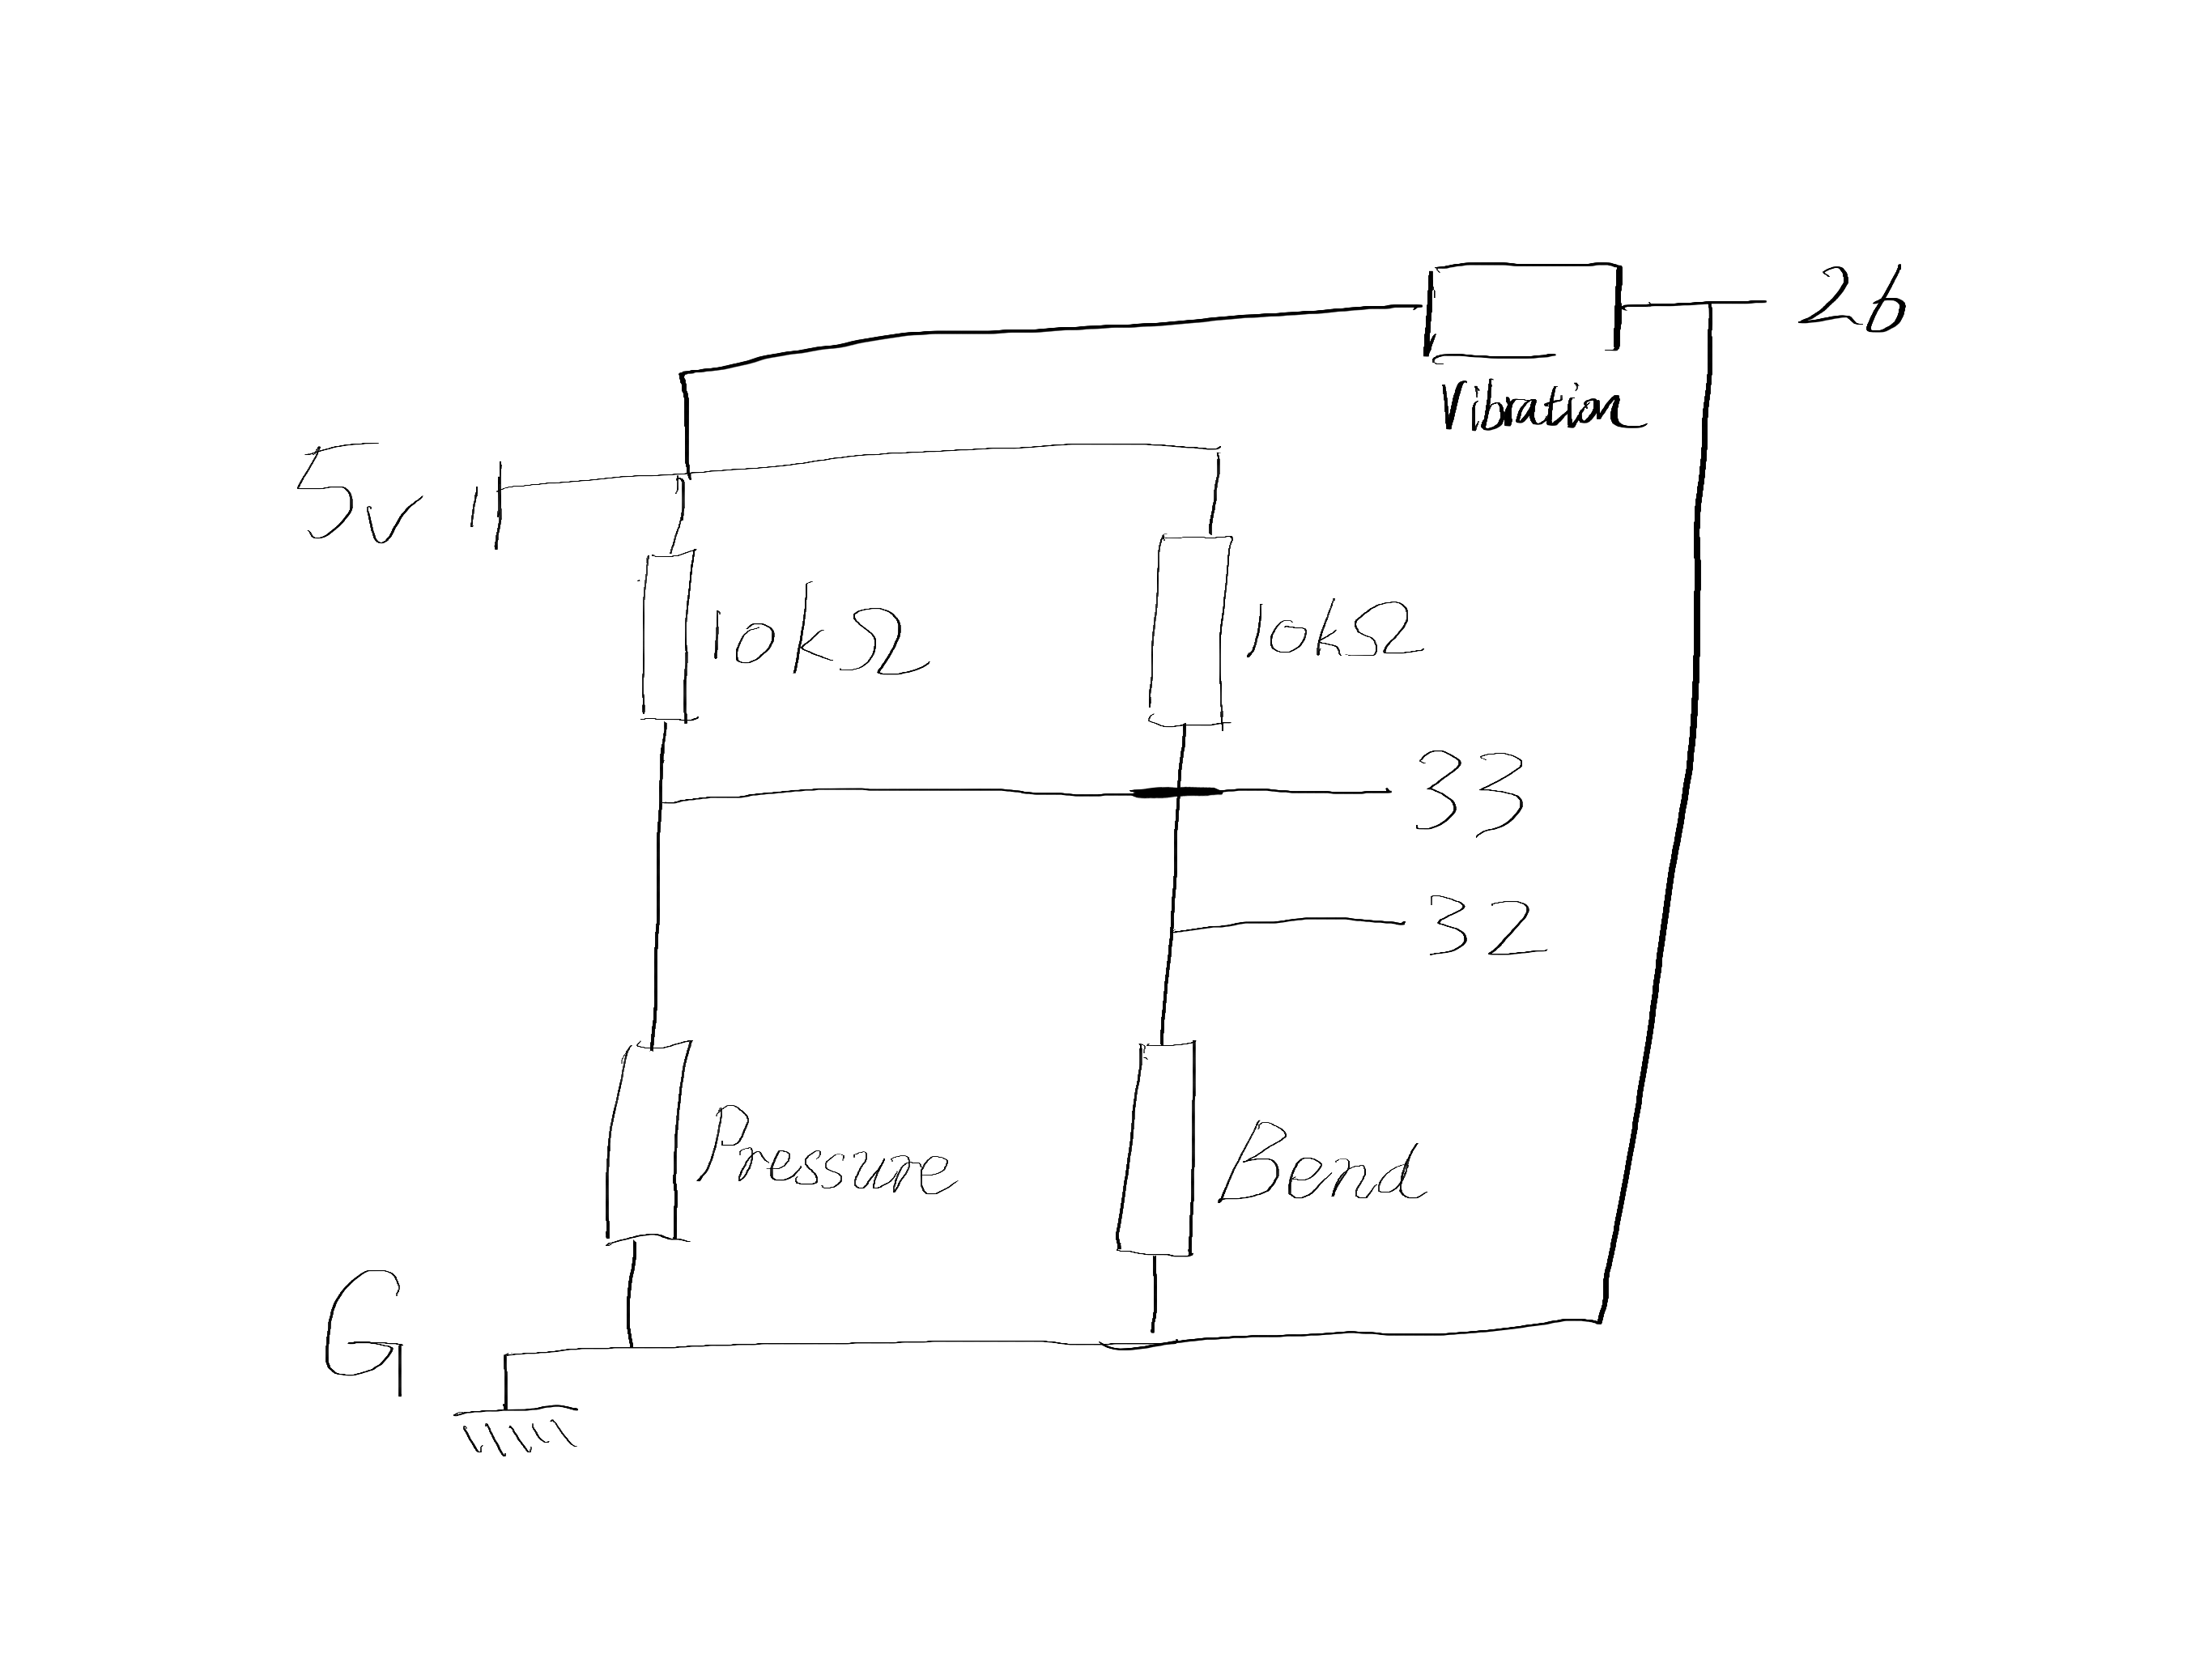 26
Vibration
5v
10kΩ
10kΩ
33
32
Pressure
Bend
G